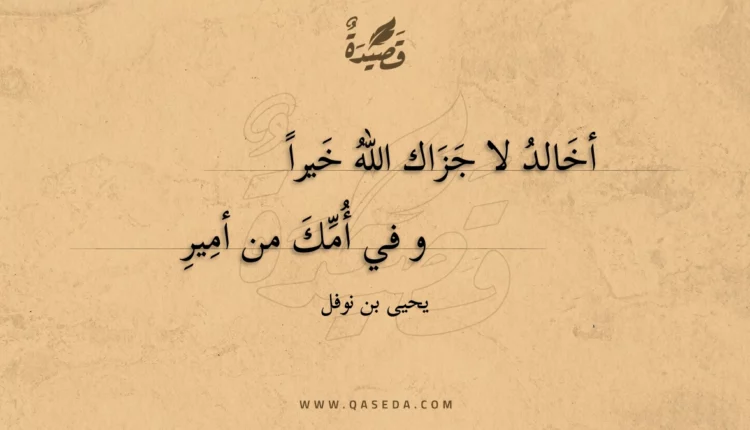 قَصِيدَةٌ
أخَالدُ لا جَزَاك اللهُ خَيراً
و في أُمِّكَ من أمِيرِ
يحيى بن نوفل
WWW.QASEDA.COM